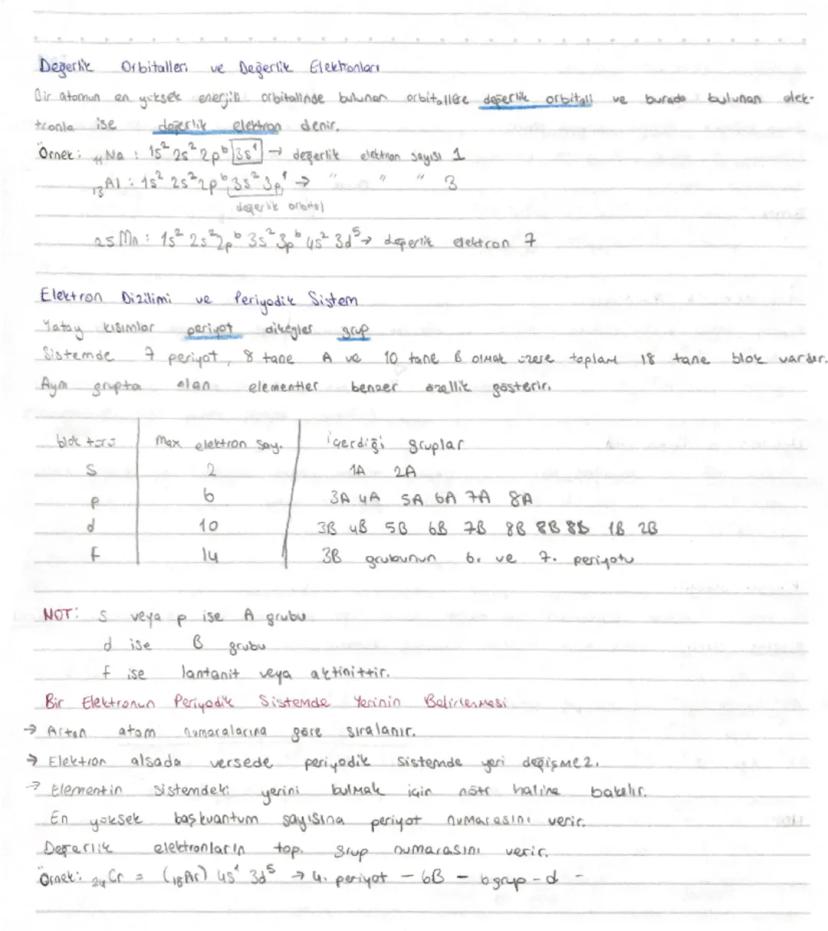 Değerlik Orbitalleri ve Değerlik Elektronları
Bir atomun en yüksek enerjili orbitalinde bulunan orbitallere değerlik orbitali ve burada bulunan elek-
tronla ise değerlik elektron denir.
Örnek: ₁₁Na : 1s² 2s² 2p⁶ 3s¹ → değerlik elektron sayısı 1
₁₃Al : 1s² 2s² 2p⁶ 3s² 3p¹ → " " " 3
değerlik orbital
25 Mn : 1s² 2s² 2p⁶ 3s² 3p⁶ 4s² 3d⁵ → değerlik elektron 7
Elektron Dizilimi ve Periyodik Sistem
Yatay kısımlar periyot dikeyler grup
Sistemde 7 periyot, 8 tane A ve 10 tane B olmak üzere toplam 18 tane blok vardır.
Aynı grupta olan elementler benzer özellik gösterir.
blok türü Max elektron say. içerdiği gruplar
S 2 1A 2A
p 6 3A 4A 5A 6A 7A 8A
d 10 3B 4B 5B 6B 7B 8B 8B 8B 1B 2B
f 14 3B grubunun 6. ve 7. periyotu
NOT: s veya p ise A grubu
d ise B grubu
f ise lantanit veya aktinittir.
Bir Elektronun Periyodik Sistemde Yerinin Belirlenmesi
→ Artan atom numaralarına göre sıralanır.
→ Elektron alsada versede periyodik sistemde yeri değişmez.
→ Elementin sistemdeki yerini bulmak için nötr haline bakılır.
En yüksek başkuantum sayısına periyot numarasını verir.
Değerlik elektronların top. grup numarasını verir.
Örnek: ₂₄Cr = (₁₈Ar) 4s¹ 3d⁵ → 4. periyot - 6B - 6 grup - d -